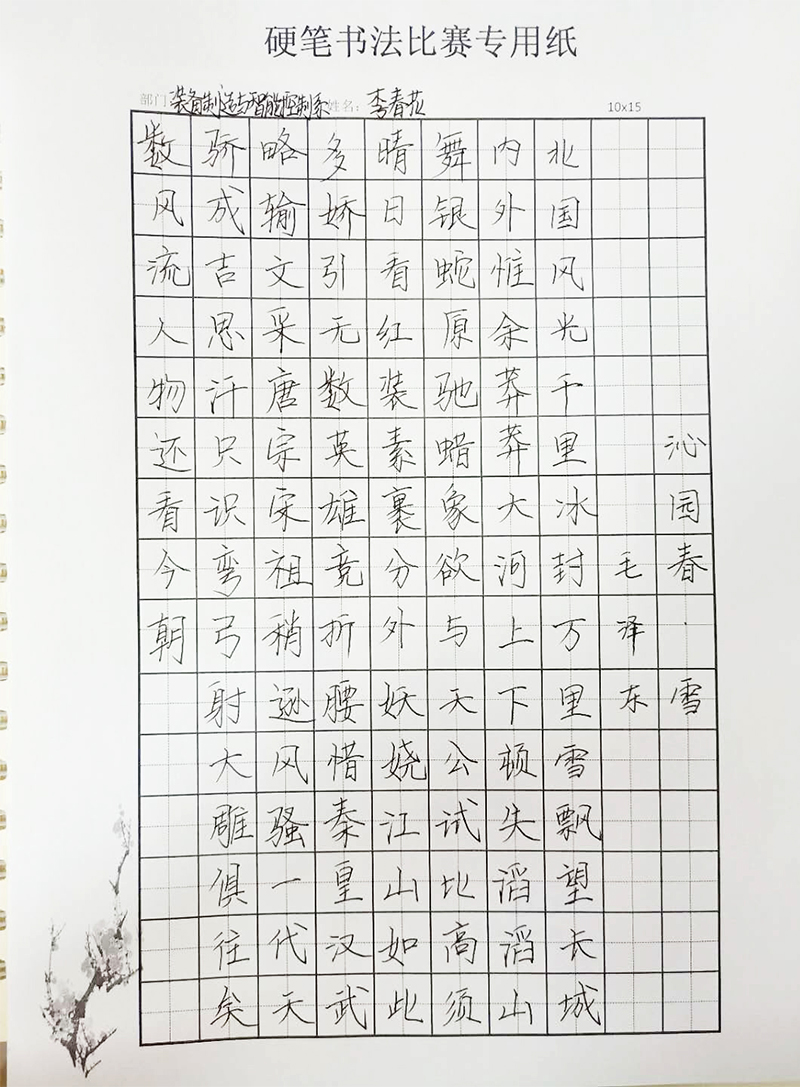 硬笔书法比赛专用纸
部门：装备制造与智能控制系 姓名：李春花 10x15
沁园春·雪
毛泽东
北国风光千里冰封万里雪飘望长城
内外惟余莽莽大河上下顿失滔滔山
舞银蛇原驰蜡象欲与天公试比高须
晴日看红装素裹分外妖娆江山如此
多娇引无数英雄竞折腰惜秦皇汉武
略输文采唐宗宋祖稍逊风骚一代天
骄成吉思汗只识弯弓射大雕俱往矣
数风流人物还看今朝